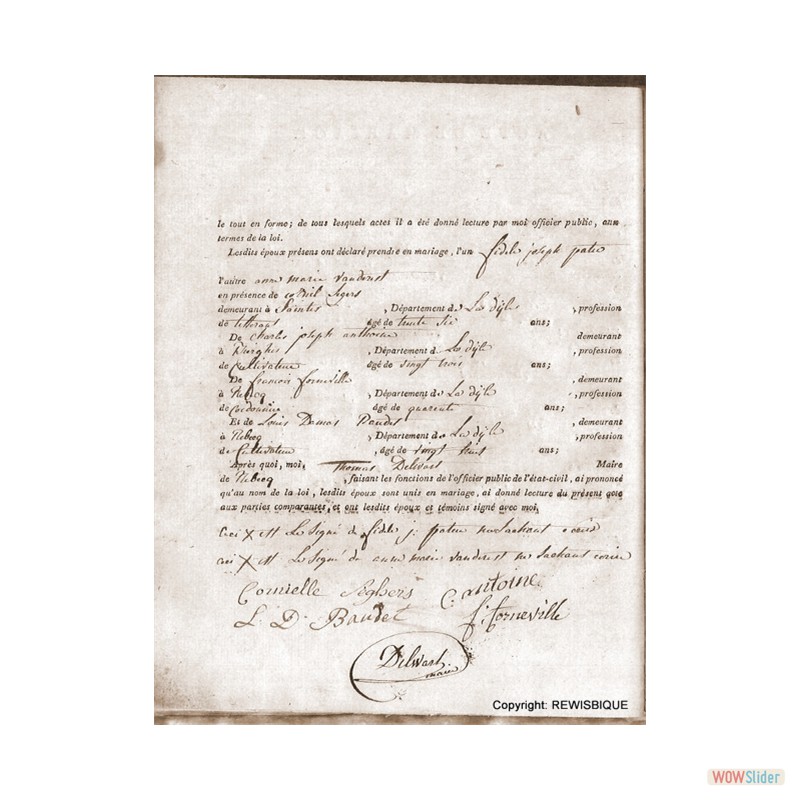 le tout en forme; de tous lesquels actes il a été donné lecture par moi officier public, aux
termes de la loi.
Lesdits époux présens ont déclaré prendre en mariage, l'un fidele joseph pater
l'autre anne marie vanderist
en présence de cornil Segers
demeurant à Saintes, Département de La dijle, profession
de âgé de trente six ans;
De Charles joseph anthoine demeurant
à, Département de La dijle, profession
de Cultivateur âgé de vingt trois ans;
De francois forneville, demeurant
à Rebecq, Département de La dijle, profession
de Cordonnier âgé de quarente ans;
Et de Louis Damas Baudet, demeurant
à Rebecq, Département de La dijle profession
de Cultivateur, âgé de vingt huit ans;
Après quoi, moi, Thomas Delwart Maire
de Rebecq, faisant les fonctions de l'officier public de l'état-civil, ai prononcé
qu'au nom de la loi, lesdits époux sont unis en mariage, ai donné lecture du présent acte
aux parties comparantes, et ont lesdits époux et témoins signé avec moi,
ceci X est Le Signé de fidele j: pater ne Sachant ecrire
ceci X est Le Signé de anne marie vanderist ne Sachant ecrire
Cornielle Seghers C. antoine
L. D. Baudet f: forneville
Delwart
maire
Copyright: REWISBIQUE
WOWSlider